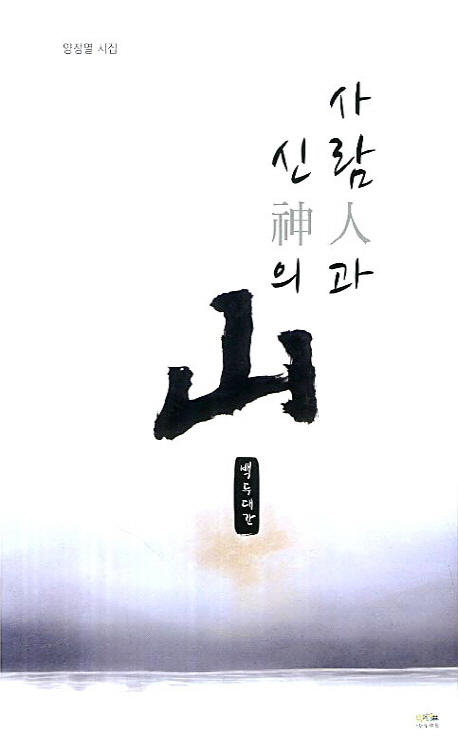 양정열 시집
사람人과
신神의
山
백두대간